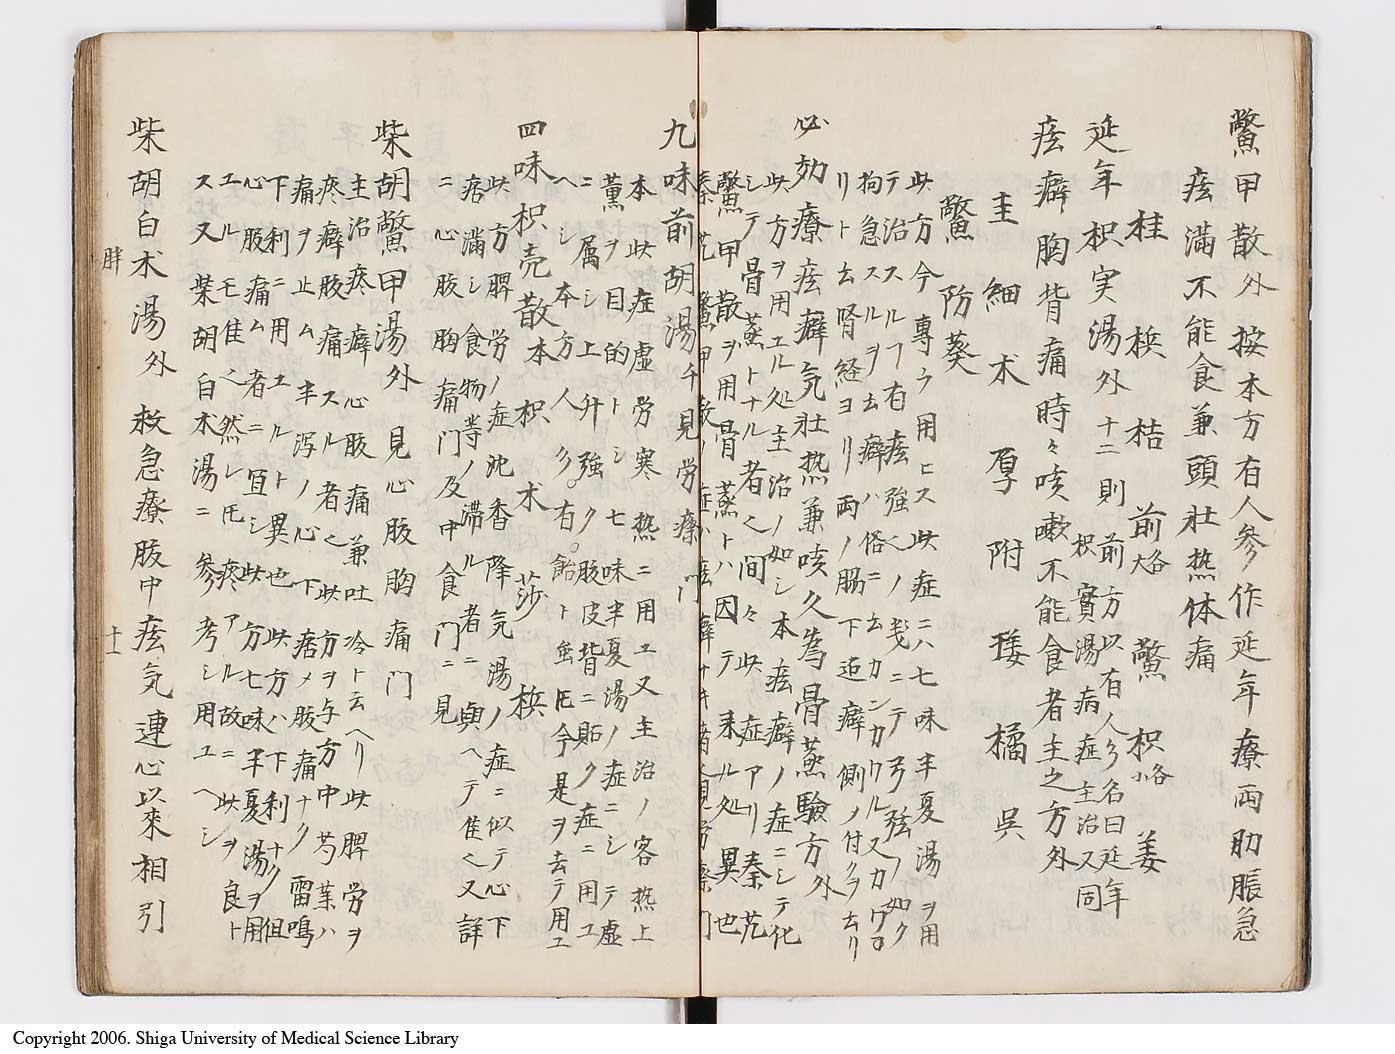 鱉甲散外 按本方有人参作延年療両肋脹急
痃満不能食兼頭壮热体痛
桂 梹 桔 前大各 鱉 枳小各 姜
延年枳実湯外 十二則 前方以有人参名曰延年
枳實湯病症主治又同
痃癖胸背痛時々咳嗽不能食者主之方外
圭 細 朮 厚 附 䕡 橘 呉
鱉 防葵
此方今専ラ用ヒス此症ニハ七味半夏湯ヲ用
テ治スルヿ有痃強ノ義ニテ弓弦ノ如ク
拘急スルヲ云癖ハ俗ニ云カンカケル又カワロ
リト云腎経ヨリ両ノ脇下迫癖側ノ付クヲ云リ
必効療痃癖気壮热兼咳久為骨蒸験方外
此方ヲ用エル処主治ノ如シ本痃癖ノ症ニシテ化
シテ骨蒸トナル者也間々此症アリ秦艽
鱉甲散ヲ用骨蒸トハ因テ来ル処異也
九味前胡湯千見労瘵門
本此症虚労寒热ニ用エ又主治ノ客热上
薫ヲ目的トシ七味半夏湯ノ症ニシテ虚
ニ属シ上升強ク腹皮背ニ貼ク症ニ用エ
ヘシ本方人参有飴ト虫𪜈今是ヲ去テ用ユ
四味枳売散本 枳 朮 莎 梹
此方脾労ノ症沈香降気湯ノ症ニ似テ心下
痞満シ食物等ノ滞ル者ニ與ヘテ佳也又詳
ニ心腹胸痛門及中食門ニ見
柴胡鱉甲湯外 見心腹胸痛門
主治疼癖心腹痛兼吐冷ト云ヘリ此脾労ヲ
疼癖腹痛スル者也此方ヲ与方中芍葉ハ
痛ヲ止ム半瀉ノ心下痞〆腹痛ナク雷鳴
下利ニ用エルト異也此方ハ下利ナク但
心腹痛ム者ニ宜シ此方七味半夏湯ヲ用
エルモ佳也然レ𪜈疼アル故ニ此ヲ良ト
ス又柴胡白朮湯ニ参考シ用ユヘシ
柴胡白朮湯外 救急療腹中痃気連心以来相引
胖
十一
Copyright 2006. Shiga University of Medical Science Library